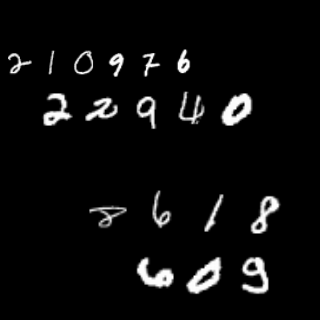 210976
22940
8618
609